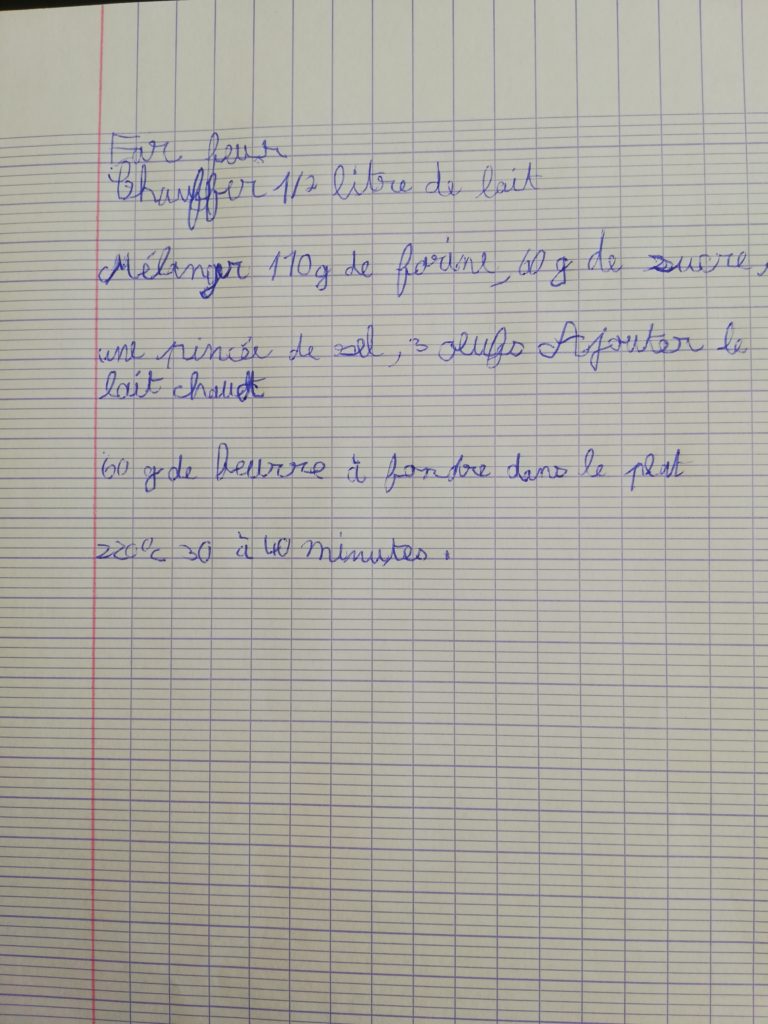 Far four
Chauffer 1/2 litre de lait
Mélanger 110g de farine, 60 g de sucre,
une pincée de sel, 3 oeufs Ajouter le
lait chaud
60 g de beurre à fondre dans le plat
220°c 30 à 40 minutes.